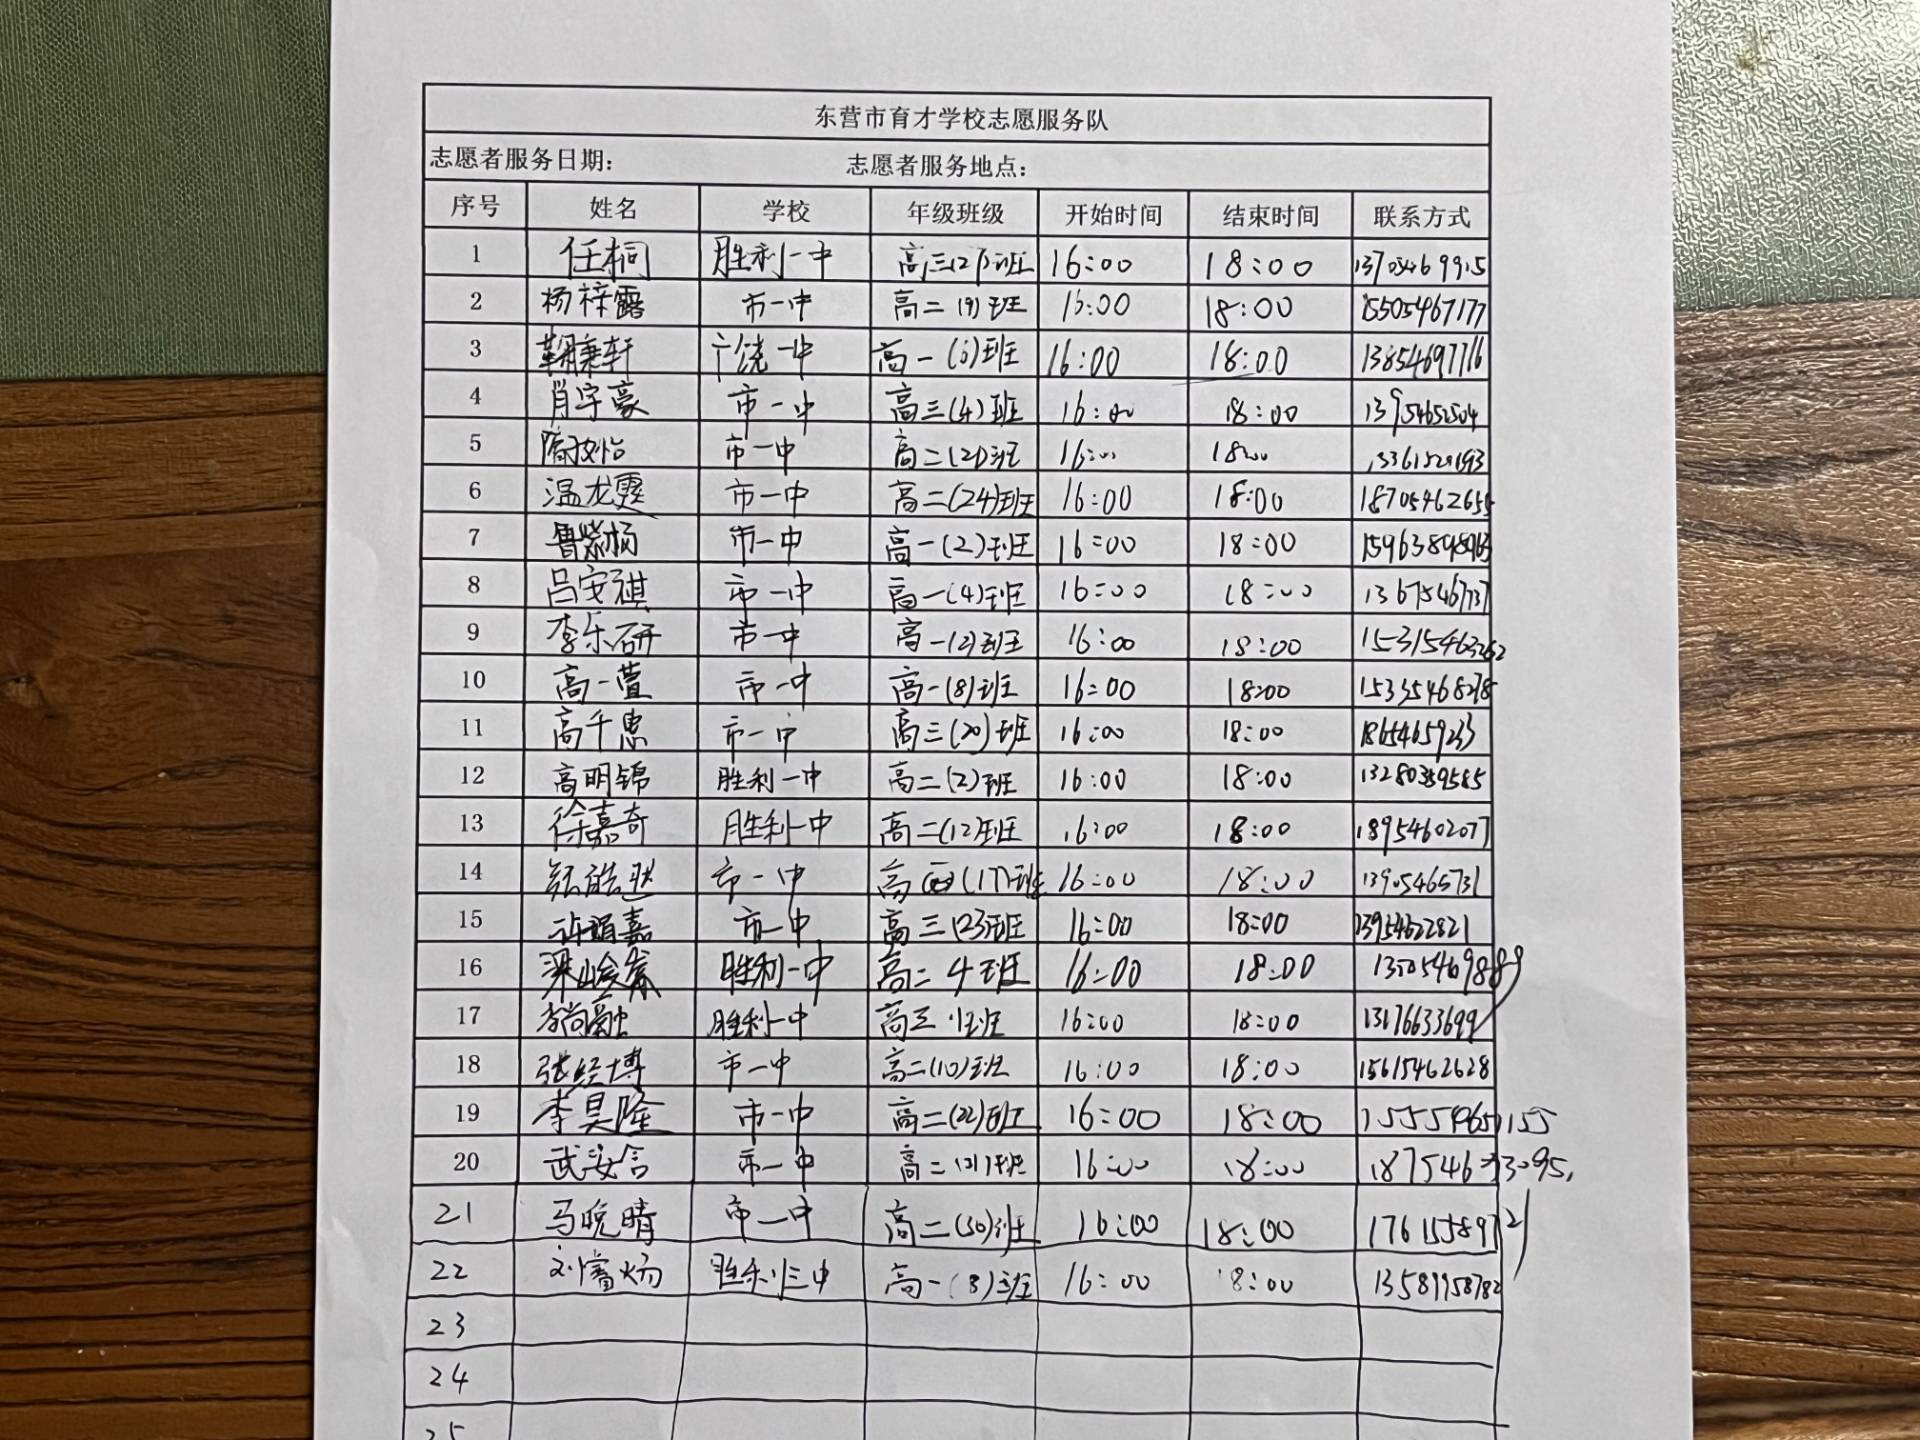 东营市育才学校志愿服务队
志愿者服务日期: 志愿者服务地点:
序号 姓名 学校 年级班级 开始时间 结束时间 联系方式
1 任桐 胜利一中 高三(27)班 16:00 18:00
2 杨梓露 市一中 高二(9)班 16:00 18:00 15505467177
3 鞠秉轩 广饶一中 高一(6)班 16:00 18:00 13854697716
4 肖宇豪 市一中 高三(4)班 16:00 18:00 13954652504
5 隋妙怡 市一中 高二(21)班 16:00 18:00
6 温龙霆 市一中 高二(24)班 16:00 18:00 18705462655
7 鲁紫杨 市一中 高一(2)班 16:00 18:00
8 吕安祺 市一中 高一(4)班 16:00 18:00 13675467737
9 李乐研 市一中 高一(2)班 16:00 18:00 15315463262
10 高一萱 市一中 高一(8)班 16:00 18:00
11 高千惠 市一中 高三(20)班 16:00 18:00 18654659233
12 高明锦 胜利一中 高二(2)班 16:00 18:00 13280359585
13 徐嘉奇 胜利一中 高二(12)班 16:00 18:00 18954602077
14 市一中 高 (17)班 16:00 18:00 13905465731
15 许媚嘉 市一中 高三(23)班 16:00 18:00 13954622821
16 梁峻豪 胜利一中 高二 4班 16:00 18:00
17 李尚融 胜利一中 高三 1班 16:00 18:00 13176633699
18 张经博 市一中 高二(10)班 16:00 18:00 15615462628
19 李昊隆 市一中 高二(22)班 16:00 18:00 15554651155
20 武姿含 市一中 高二(21)班 16:00 18:00
21 马晚晴 市一中 高二(30)班 16:00 18:00 17615589721
22 刘睿炀 胜利三中 高一(8)班 16:00 18:00 13589958782
23
24
25